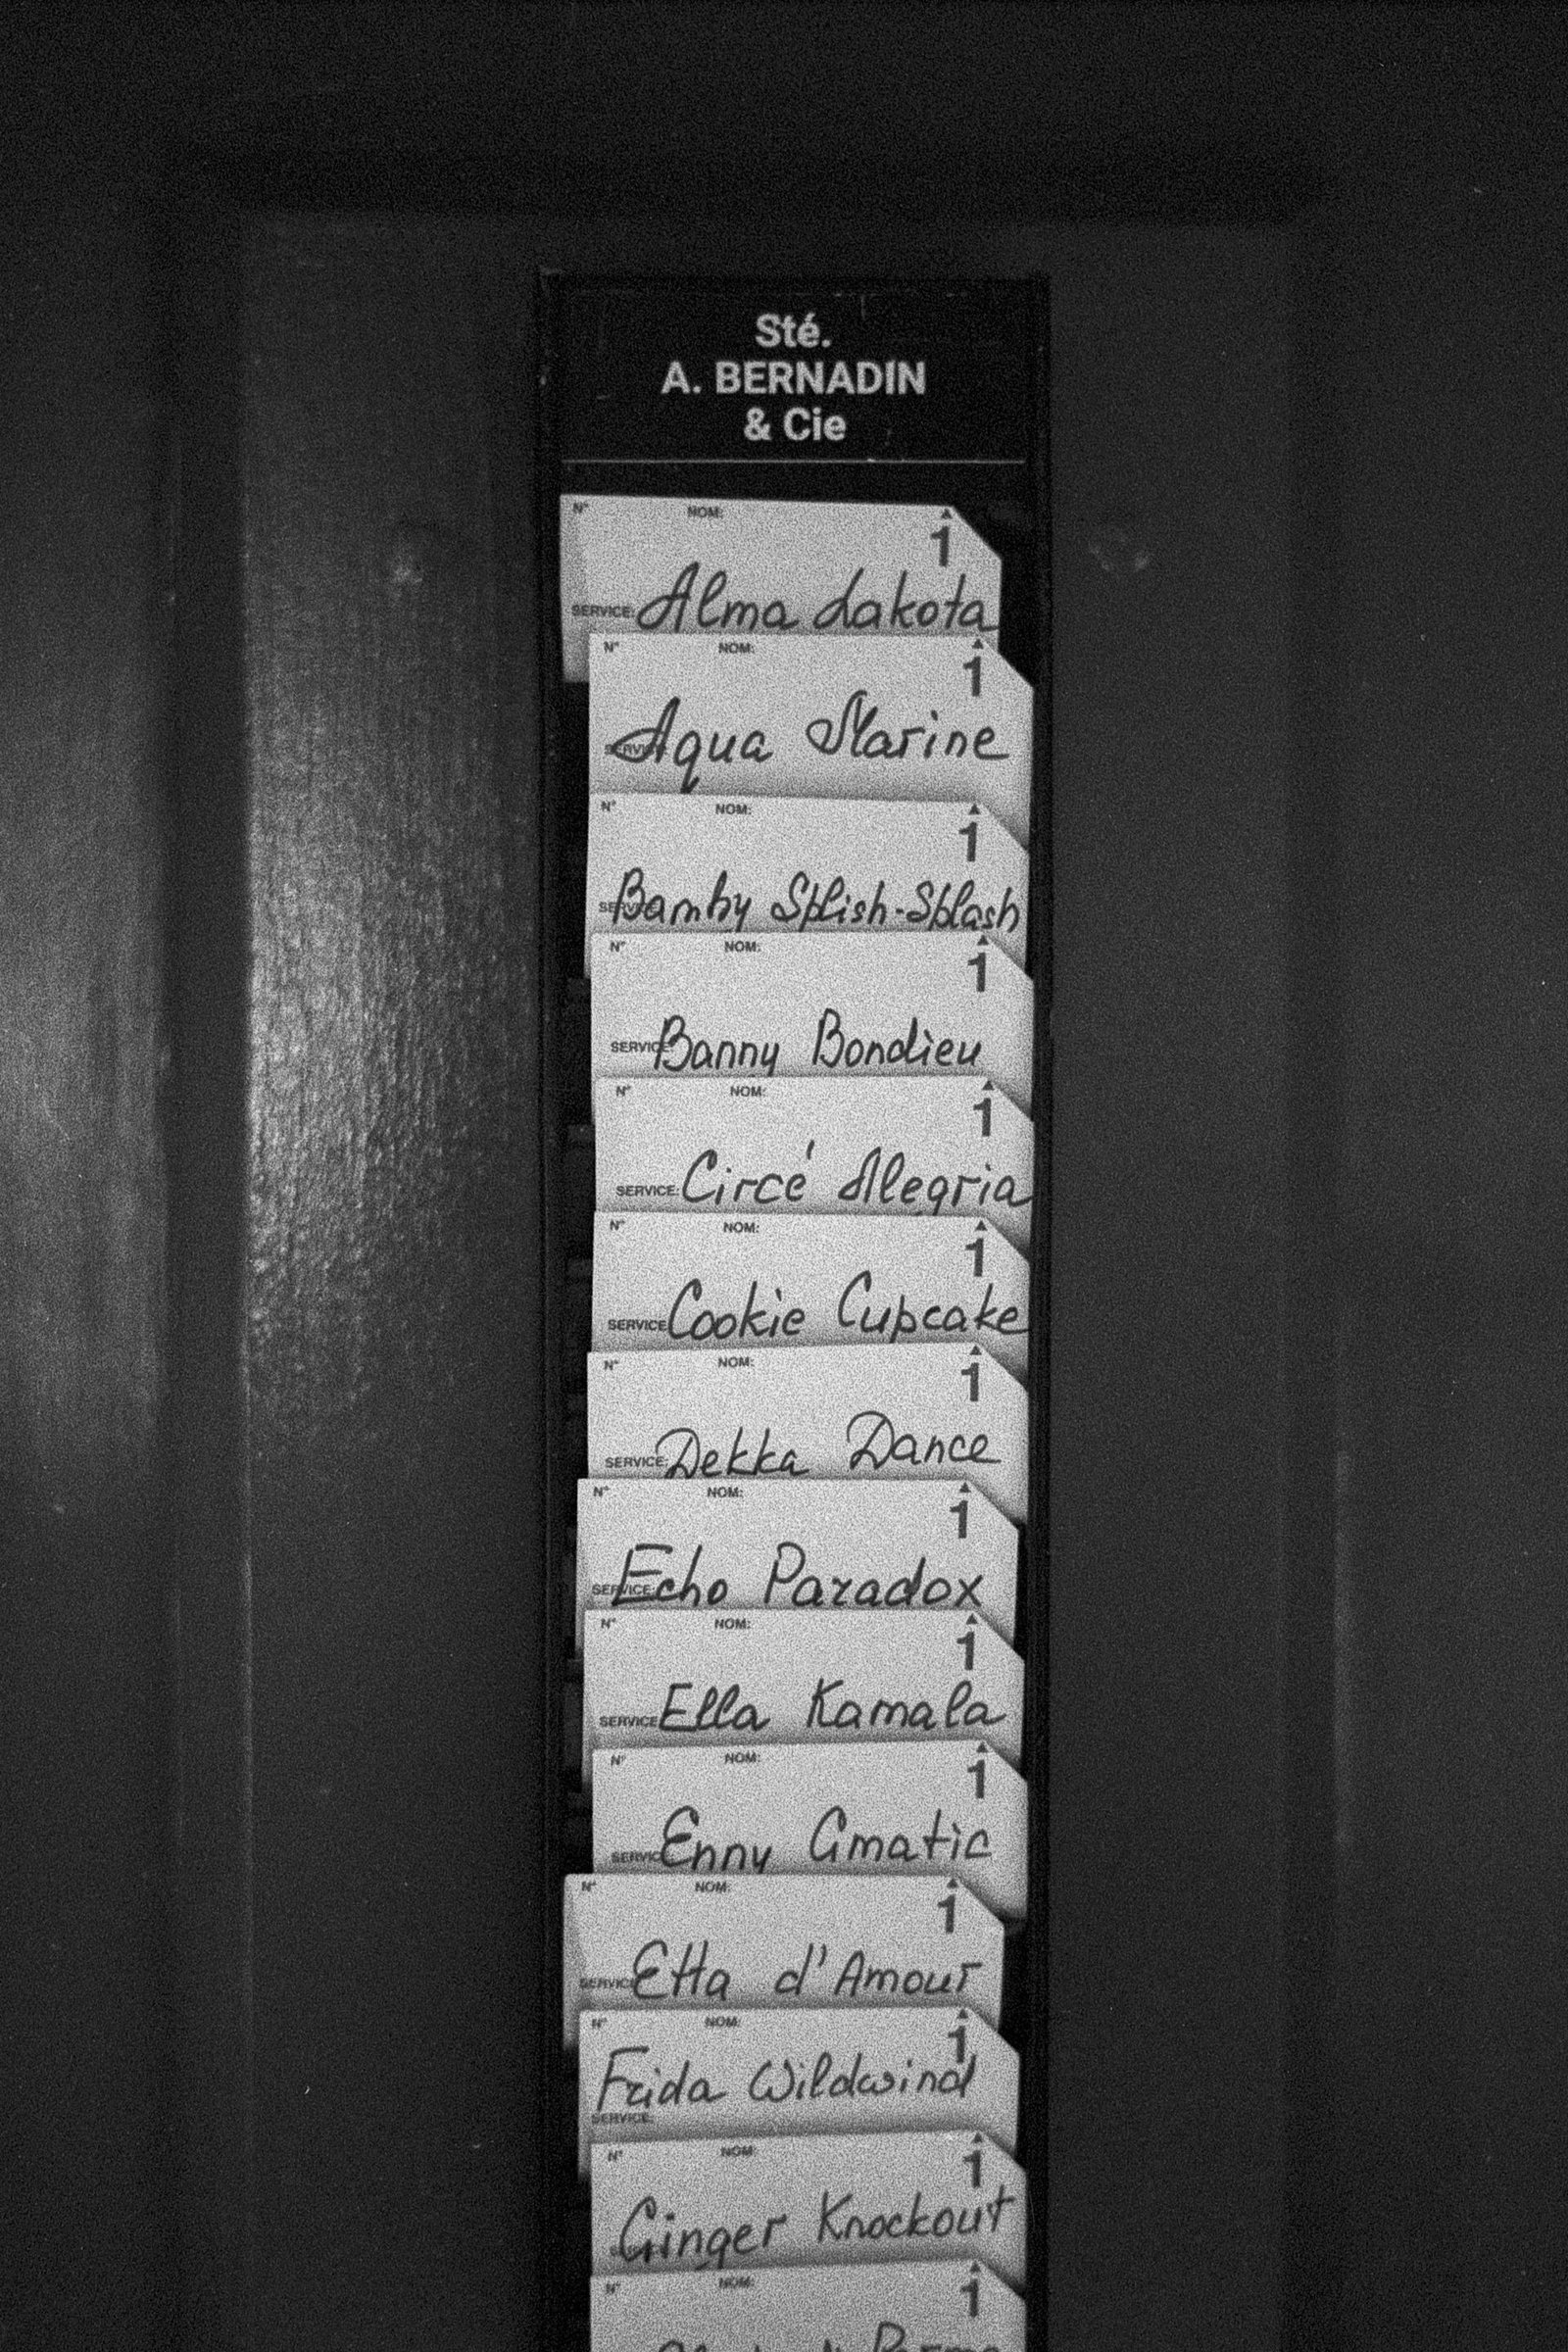 Sté.
A. BERNADIN
& Cie
N° NOM: 1
SERVICE: Alma Lakota
N° NOM: 1
SERVICE: Aqua Marine
N° NOM: 1
SERVICE: Bamby Splish-Splash
N° NOM: 1
SERVICE: Banny Bondieu
N° NOM: 1
SERVICE: Circé Alegria
N° NOM: 1
SERVICE: Cookie Cupcake
N° NOM: 1
SERVICE: Dekka Dance
N° NOM: 1
SERVICE: Echo Paradox
N° NOM: 1
SERVICE: Ella Kamala
N° NOM: 1
SERVICE: Enny Gmatic
N° NOM: 1
SERVICE: Etta d'Amour
N° NOM: 1
Frida Wildwind
SERVICE:
N° NOM: 1
Ginger Knockout
N° NOM: 1